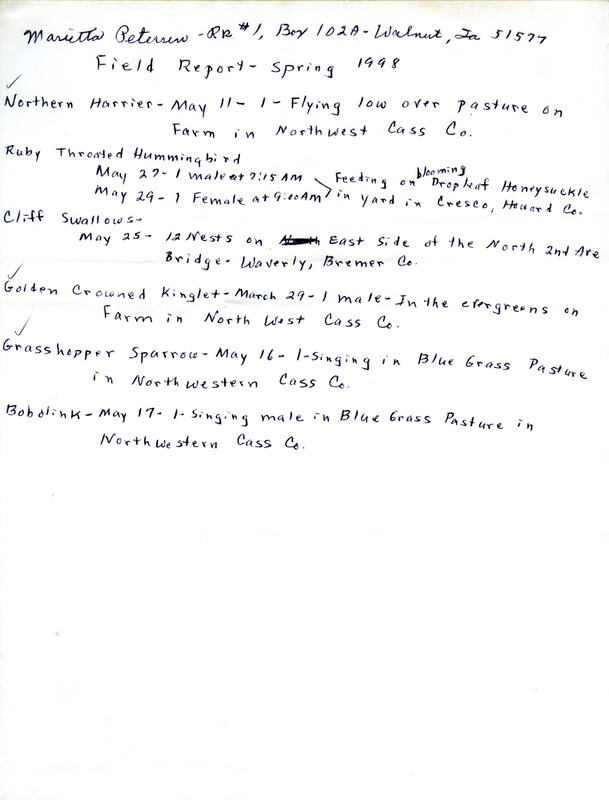 Marietta Petersen - RR #1, Box 102A - Walnut, Ia 51577
Field Report - Spring 1998
✓
Northern Harrier - May 11 - 1 - Flying low over pasture on
Farm in Northwest Cass Co.
Ruby Throated Hummingbird
May 27 - 1 male at 7:15 AM
May 29 - 1 Female at 9:00 AM
Feeding on blooming Dropleaf Honeysuckle
in yard in Cresco, Howard Co.
Cliff Swallows -
May 25 - 12 Nests on East Side of the North 2nd Ave
Bridge - Waverly, Bremer Co.
✓
Golden Crowned Kinglet - March 29 - 1 male - In the evergreens on
Farm in North West Cass Co.
✓
Grasshopper Sparrow - May 16 - 1 - Singing in Blue Grass Pasture
in Northwestern Cass Co.
Bobolink - May 17 - 1 - Singing male in Blue Grass Pasture in
Northwestern Cass Co.